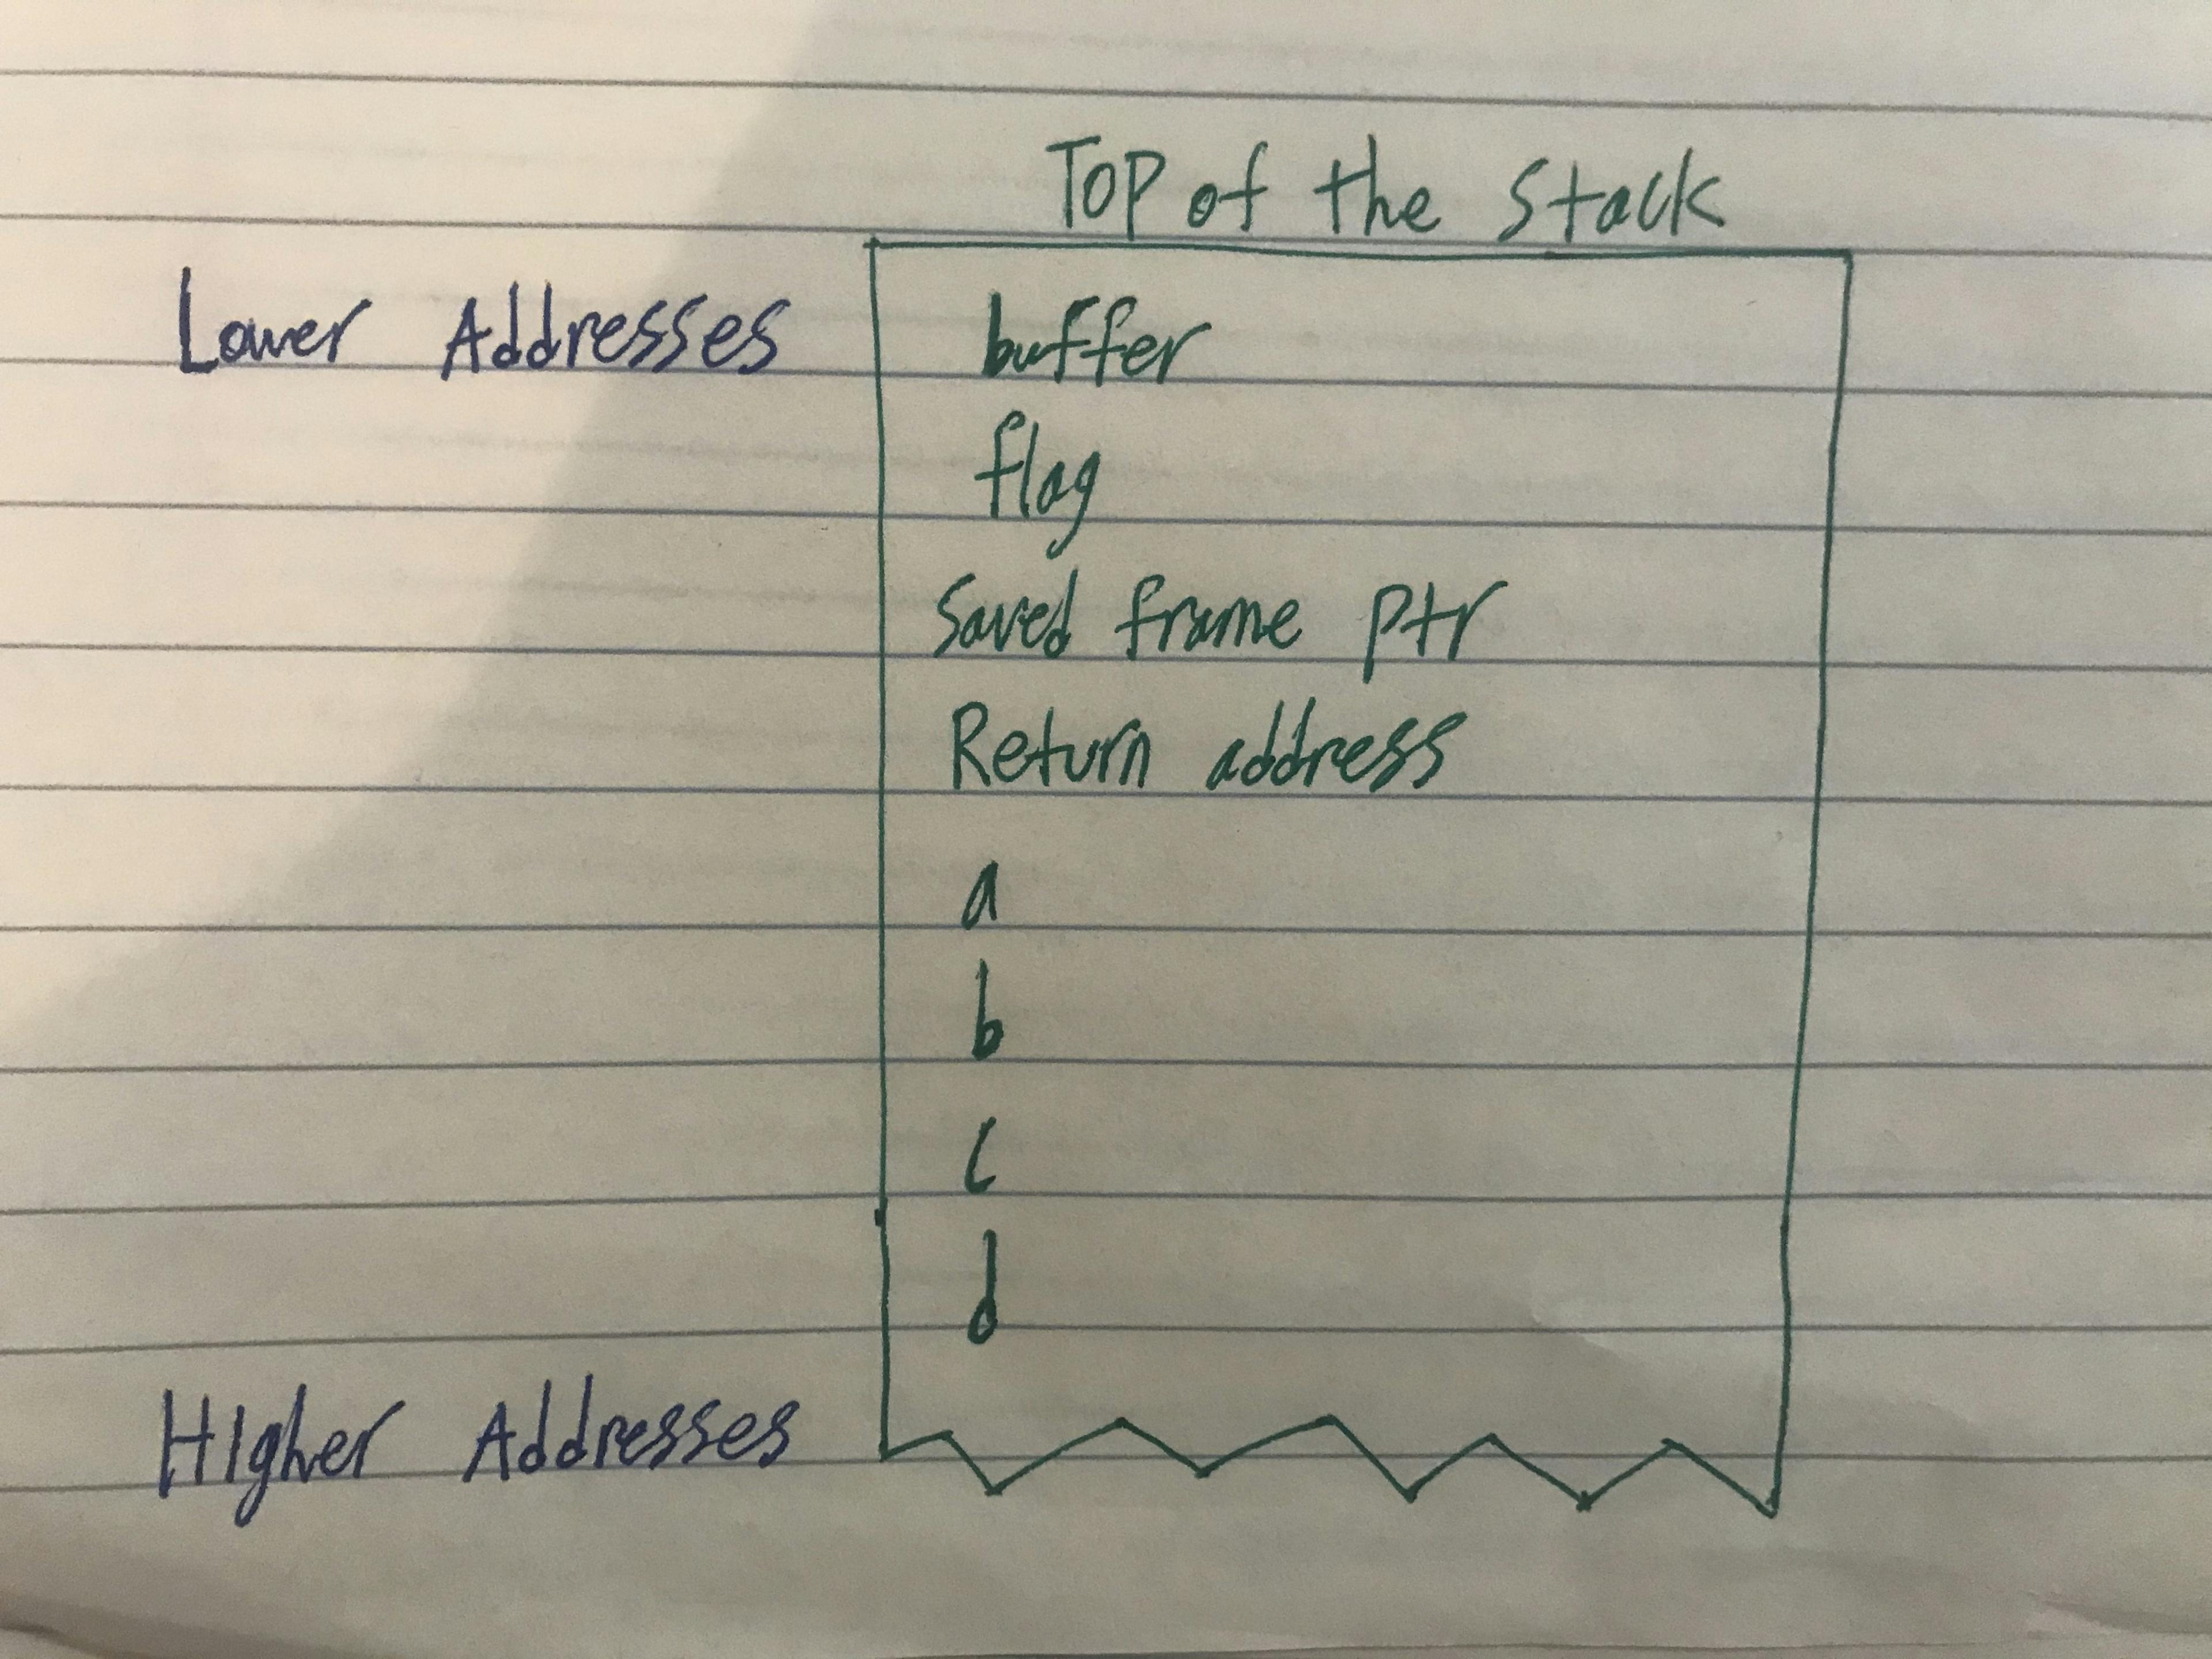 Top of the Stack
Lower Addresses
buffer
flag
Saved frame ptr
Return address
a
b
c
d
Higher Addresses